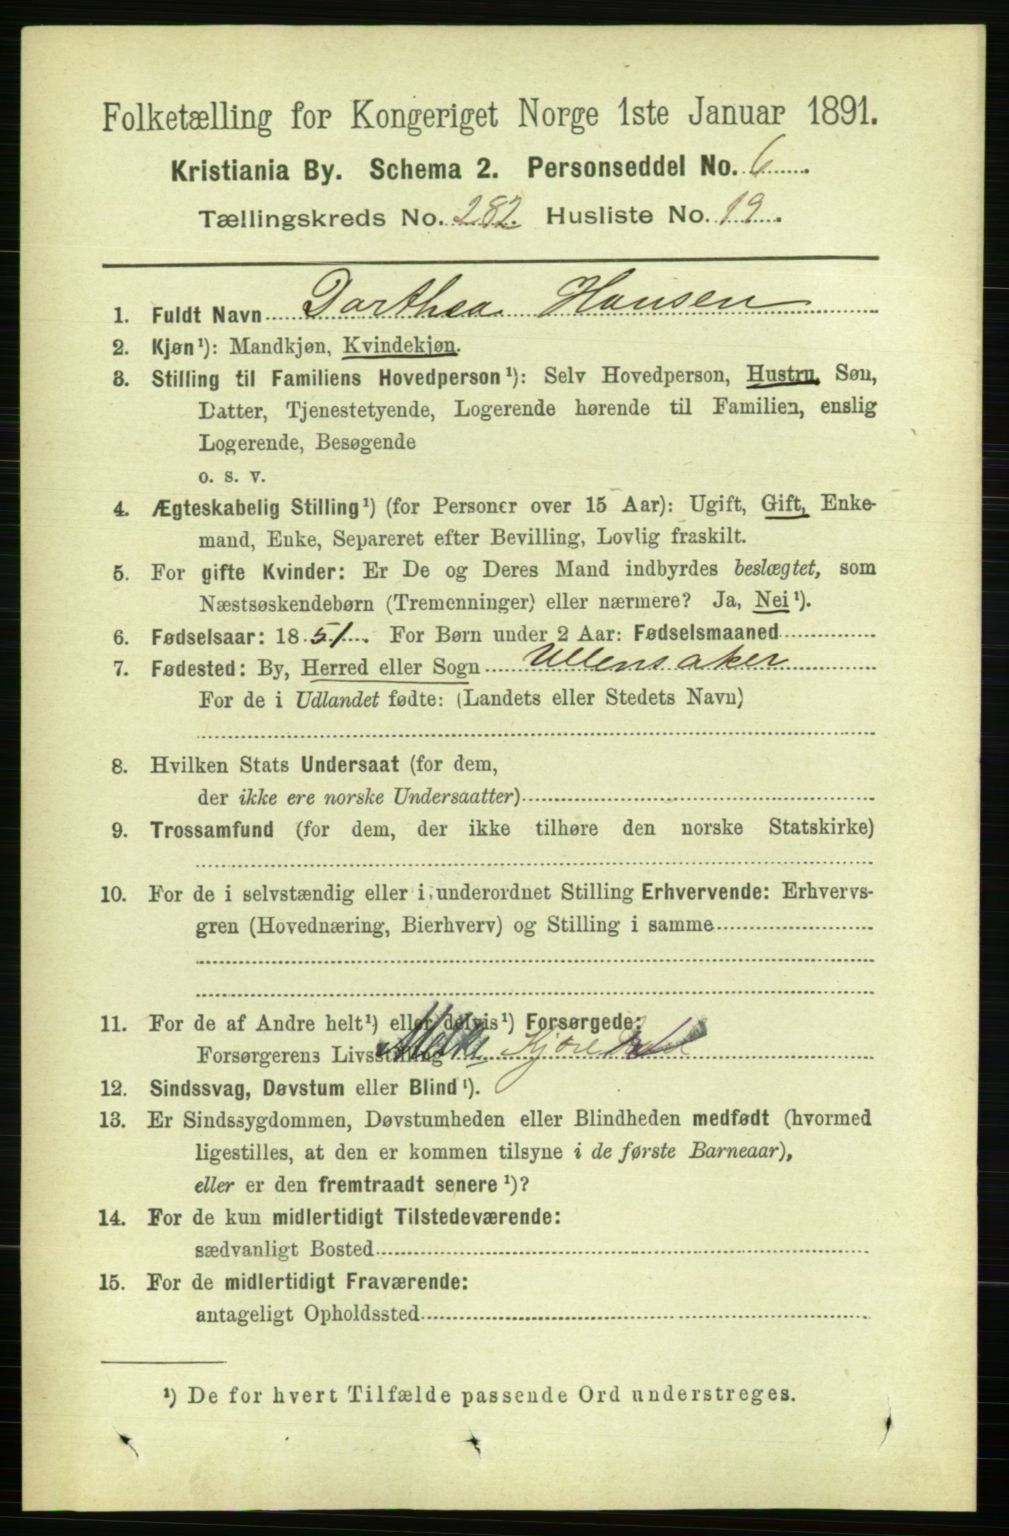 Folketælling for Kongeriget Norge 1ste Januar 1891.
Kristiania By. Schema 2. Personseddel No. 6
Tællingskreds No. 282. Husliste No. 19.
1. Fuldt Navn Dorthea Hansen
2. Kjøn¹): Mandkjøn, Kvindekjøn.
3. Stilling til Familiens Hovedperson¹): Selv Hovedperson, Hustru, Søn,
Datter, Tjenestetyende, Logerende hørende til Familien, enslig
Logerende, Besøgende
o. s. v.
4. Ægteskabelig Stilling¹) (for Personer over 15 Aar): Ugift, Gift, Enke-
mand, Enke, Separeret efter Bevilling, Lovlig fraskilt.
5. For gifte Kvinder: Er De og Deres Mand indbyrdes beslægtet, som
Næstsøskendebørn (Tremenninger) eller nærmere? Ja, Nei¹).
6. Fødselsaar: 1851. For Børn under 2 Aar: Fødselsmaaned
7. Fødested: By, Herred eller Sogn Ullensaker
For de i Udlandet fødte: (Landets eller Stedets Navn)
8. Hvilken Stats Undersaat (for dem,
der ikke ere norske Undersaatter)
9. Trossamfund (for dem, der ikke tilhøre den norske Statskirke)
10. For de i selvstændig eller i underordnet Stilling Erhvervende: Erhvervs-
gren (Hovednæring, Bierhverv) og Stilling i samme
11. For de af Andre helt¹) eller delvis¹) Forsørgede:
Forsørgerens Livsstilling
12. Sindssvag, Døvstum eller Blind¹).
13. Er Sindssygdommen, Døvstumheden eller Blindheden medfødt (hvormed
ligestilles, at den er kommen tilsyne i de første Barneaar),
eller er den fremtraadt senere¹)?
14. For de kun midlertidigt Tilstedeværende:
sædvanligt Bosted
15. For de midlertidigt Fraværende:
antageligt Opholdssted
¹) De for hvert Tilfælde passende Ord understreges.